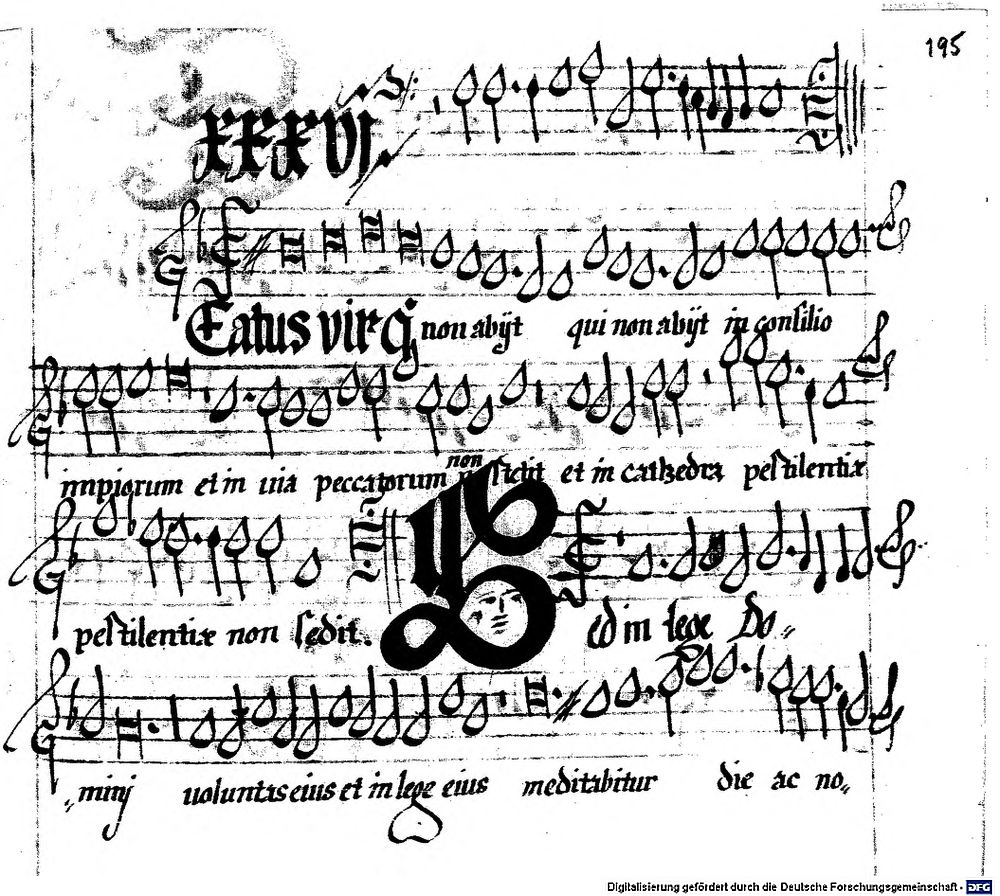 195
XXXVI
Eatus vir q̃ non abijt qui non abijt in consilio
impiorum et in uia peccatorum non stetit et in cathedra pestilentiæ
pestilentiæ non sedit.
Sed in lege Do„
„minj uoluntas eius et in lege eius meditabitur die ac no„
Digitalisierung gefördert durch die Deutsche Forschungsgemeinschaft - DFG